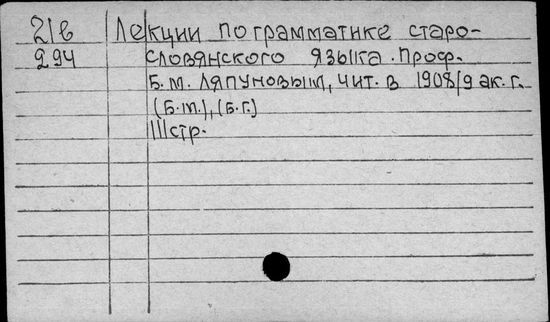 21в
294
Лекции по грамматике старо-
словянского языка. Проф.
Б.М. Ляпуновым, чит. в 1908/9 ак. г.
(Б.м.), (Б.г.)
111стр.